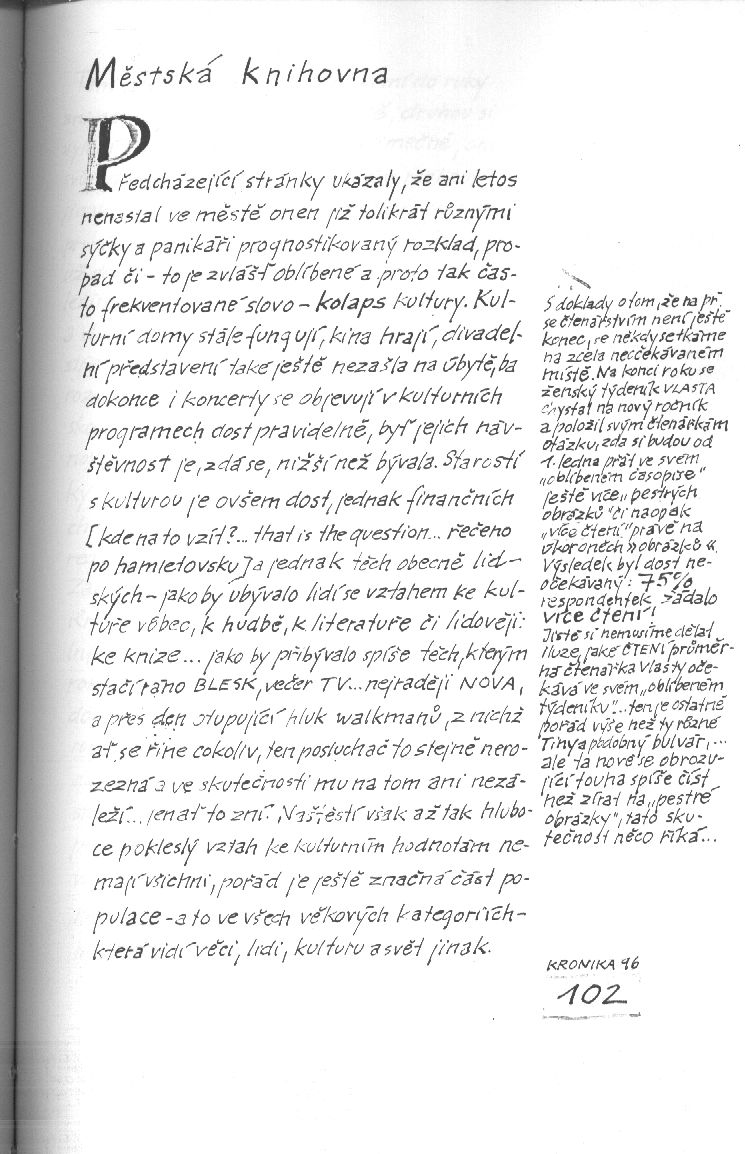 Městská knihovna
Předcházející stránky ukázaly, že ani letos
nenastal ve městě onen již tolikrát různými
sýčky a panikáři prognostikovaný rozklad, pro-
pad či – to je zvlášť oblíbené a proto tak čas-
to frekventované slovo – kolaps kultury. Kul-
turní domy stále fungují, kina hrají, divadel-
ní představení také ještě nezašla na úbytě, ba
dokonce i koncerty se objevují v kulturních
programech dost pravidelně, byť jejich náv-
štěvnost je, zdá se, nižší než bývala. Starostí
s kulturou je ovšem dost, jednak finančních
[kde na to vzít?... that is the question... řečeno
po hamletovsku] a jednak těch obecně lid-
ských – jako by ubývalo lidí se vztahem ke kul-
tuře vůbec, k hudbě, k literatuře či lidověji:
ke knize... jako by přibývalo spíše těch, kterým
stačí ráno BLESK, večer TV... nejraději NOVA,
a přes den otupující hluk walkmanů, z nichž
ať se řine cokoliv, ten posluchač to stejně nero-
zezná a ve skutečnosti mu na tom ani nezá-
leží... jen ať to zní. Naštěstí však až tak hlubo-
ce pokleslý vztah ke kulturním hodnotám ne-
mají všichni, pořád je ještě značná část po-
pulace – a to ve všech věkových kategoriích –
která vidí věci, lidi, kulturu a svět jinak.
S doklady o tom, že na př.
se čtenářstvím není ještě
konec, se někdy setkáme
na zcela neočekávaném
místě. Na konci roku se
ženský týdeník VLASTA
chystal na nový ročník
a položil svým čtenářkám
otázku, zda si budou od
1. ledna přát ve svém
„oblíbeném časopise"
ještě více „pestrých
obrázků" či naopak
„více čtení" právě na
úkor oněch »obrázků«.
Výsledek byl dost ne-
očekávaný: 75%
respondentek žádalo
více čtení!
Jistě si nemusíme dělat
iluze, jaké ČTENÍ průměr-
ná čtenářka Vlasty oče-
kává ve svém „oblíbeném
týdeníku"... ten je ostatně
pořád výše než ty různé
Tiny a podobný bulvár,...
ale ta nově se obrozu-
jící touha spíše číst
než zírat na „pestré
obrázky", tato sku-
tečnost něco říká...
KRONIKA 96
102